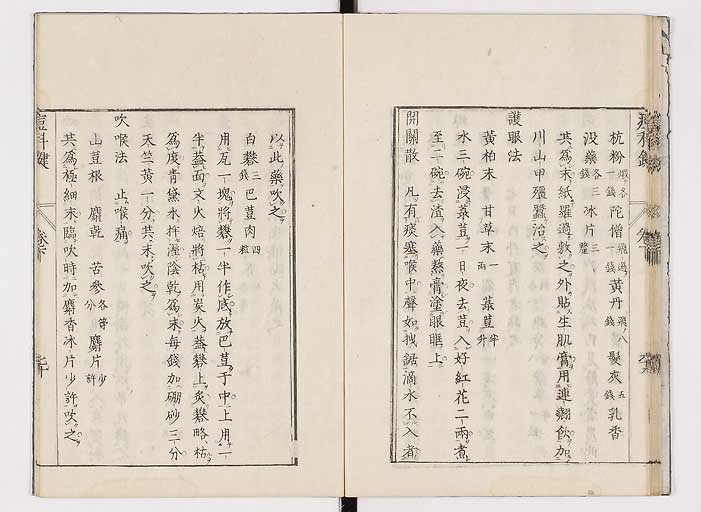 杭粉煆各一錢陀僧飛過一錢黃丹飛八錢髮灰五錢乳香
没藥各三錢冰片三釐
共爲末紙羅過敷之外貼生肌膏用連翹飲加
川山甲殭蠶治之
護眼法
黃柏末 甘草末一兩 菉荳半升
水三碗浸菉荳一日夜去荳入好紅花二兩煮
至二碗去渣入藥熬膏塗眼眶上
開關散 凡有痰塞喉中聲如拽鋸滴水不入者
以此藥吹之
白礬三錢巴荳肉四粒
用瓦一塊將礬一半作底放巴荳于中上用一
半蓋面文火焙將枯用炭火蓋礬上炙礬略枯
爲度青黛水拌溼陰乾爲末每錢加硼砂三分
天竺黃一分共末吹之
吹喉法 止喉痛
山荳根 麝乾 苦參各等分 麝片少許
共爲極細末臨吹時加麝香冰片少許吹之
痘科鍵